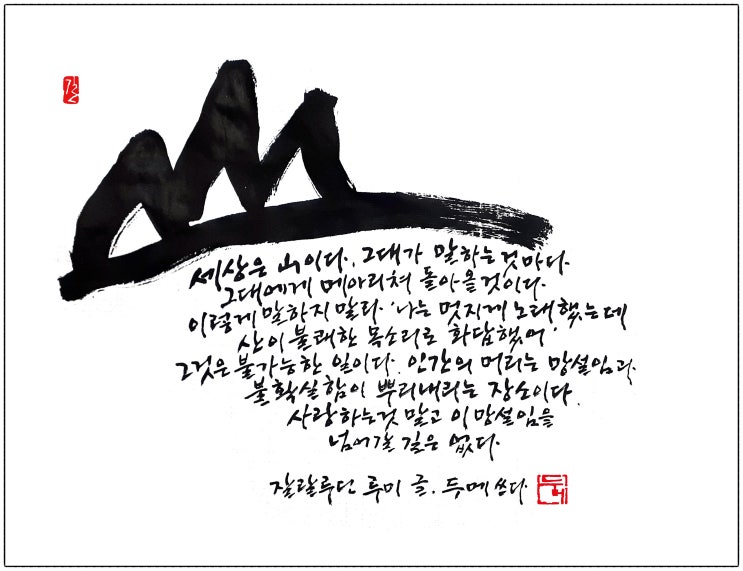 세상은 山이다. 그대가 말하는 것마다
그대에게 메아리쳐 돌아올 것이다.
이렇게 말하지 말라. '나는 멋지게 노래했는데
산이 불쾌한 목소리로 화답했어'
그것은 불가능한 일이다. 인간의 머리는 망설임과
불확실함이 뿌리내리는 장소이다.
사랑하는 것 말고 이 망설임을
넘어갈 길은 없다.
잘랄루딘 루미 글. 두메 쓰다.
두메